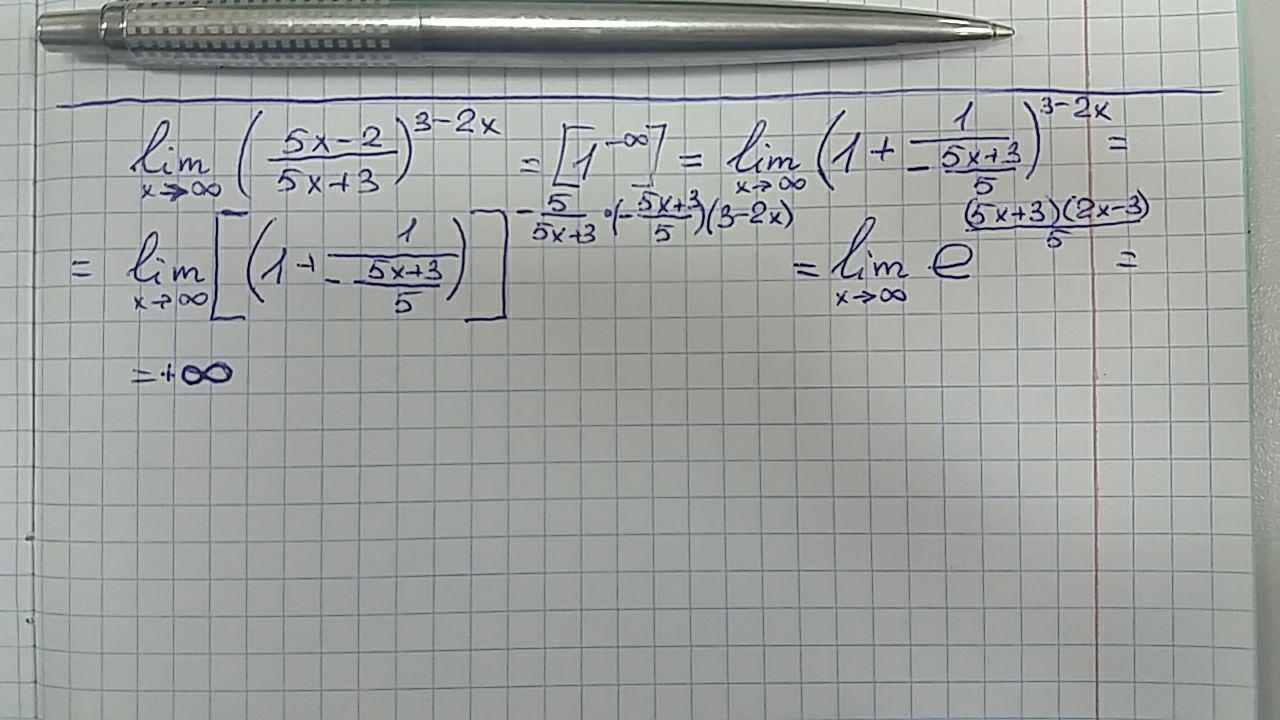 lim x→∞ ((5x-2)/(5x+3))^(3-2x) = [1^(-∞)] = lim x→∞ (1 + 1/(-(5x+3)/5))^(3-2x) =
= lim x→∞ [(1 + 1/(-(5x+3)/5))]^(-5/(5x+3) · (-(5x+3)/5)(3-2x)) = lim x→∞ e^((5x+3)(2x-3)/5) =
= +∞